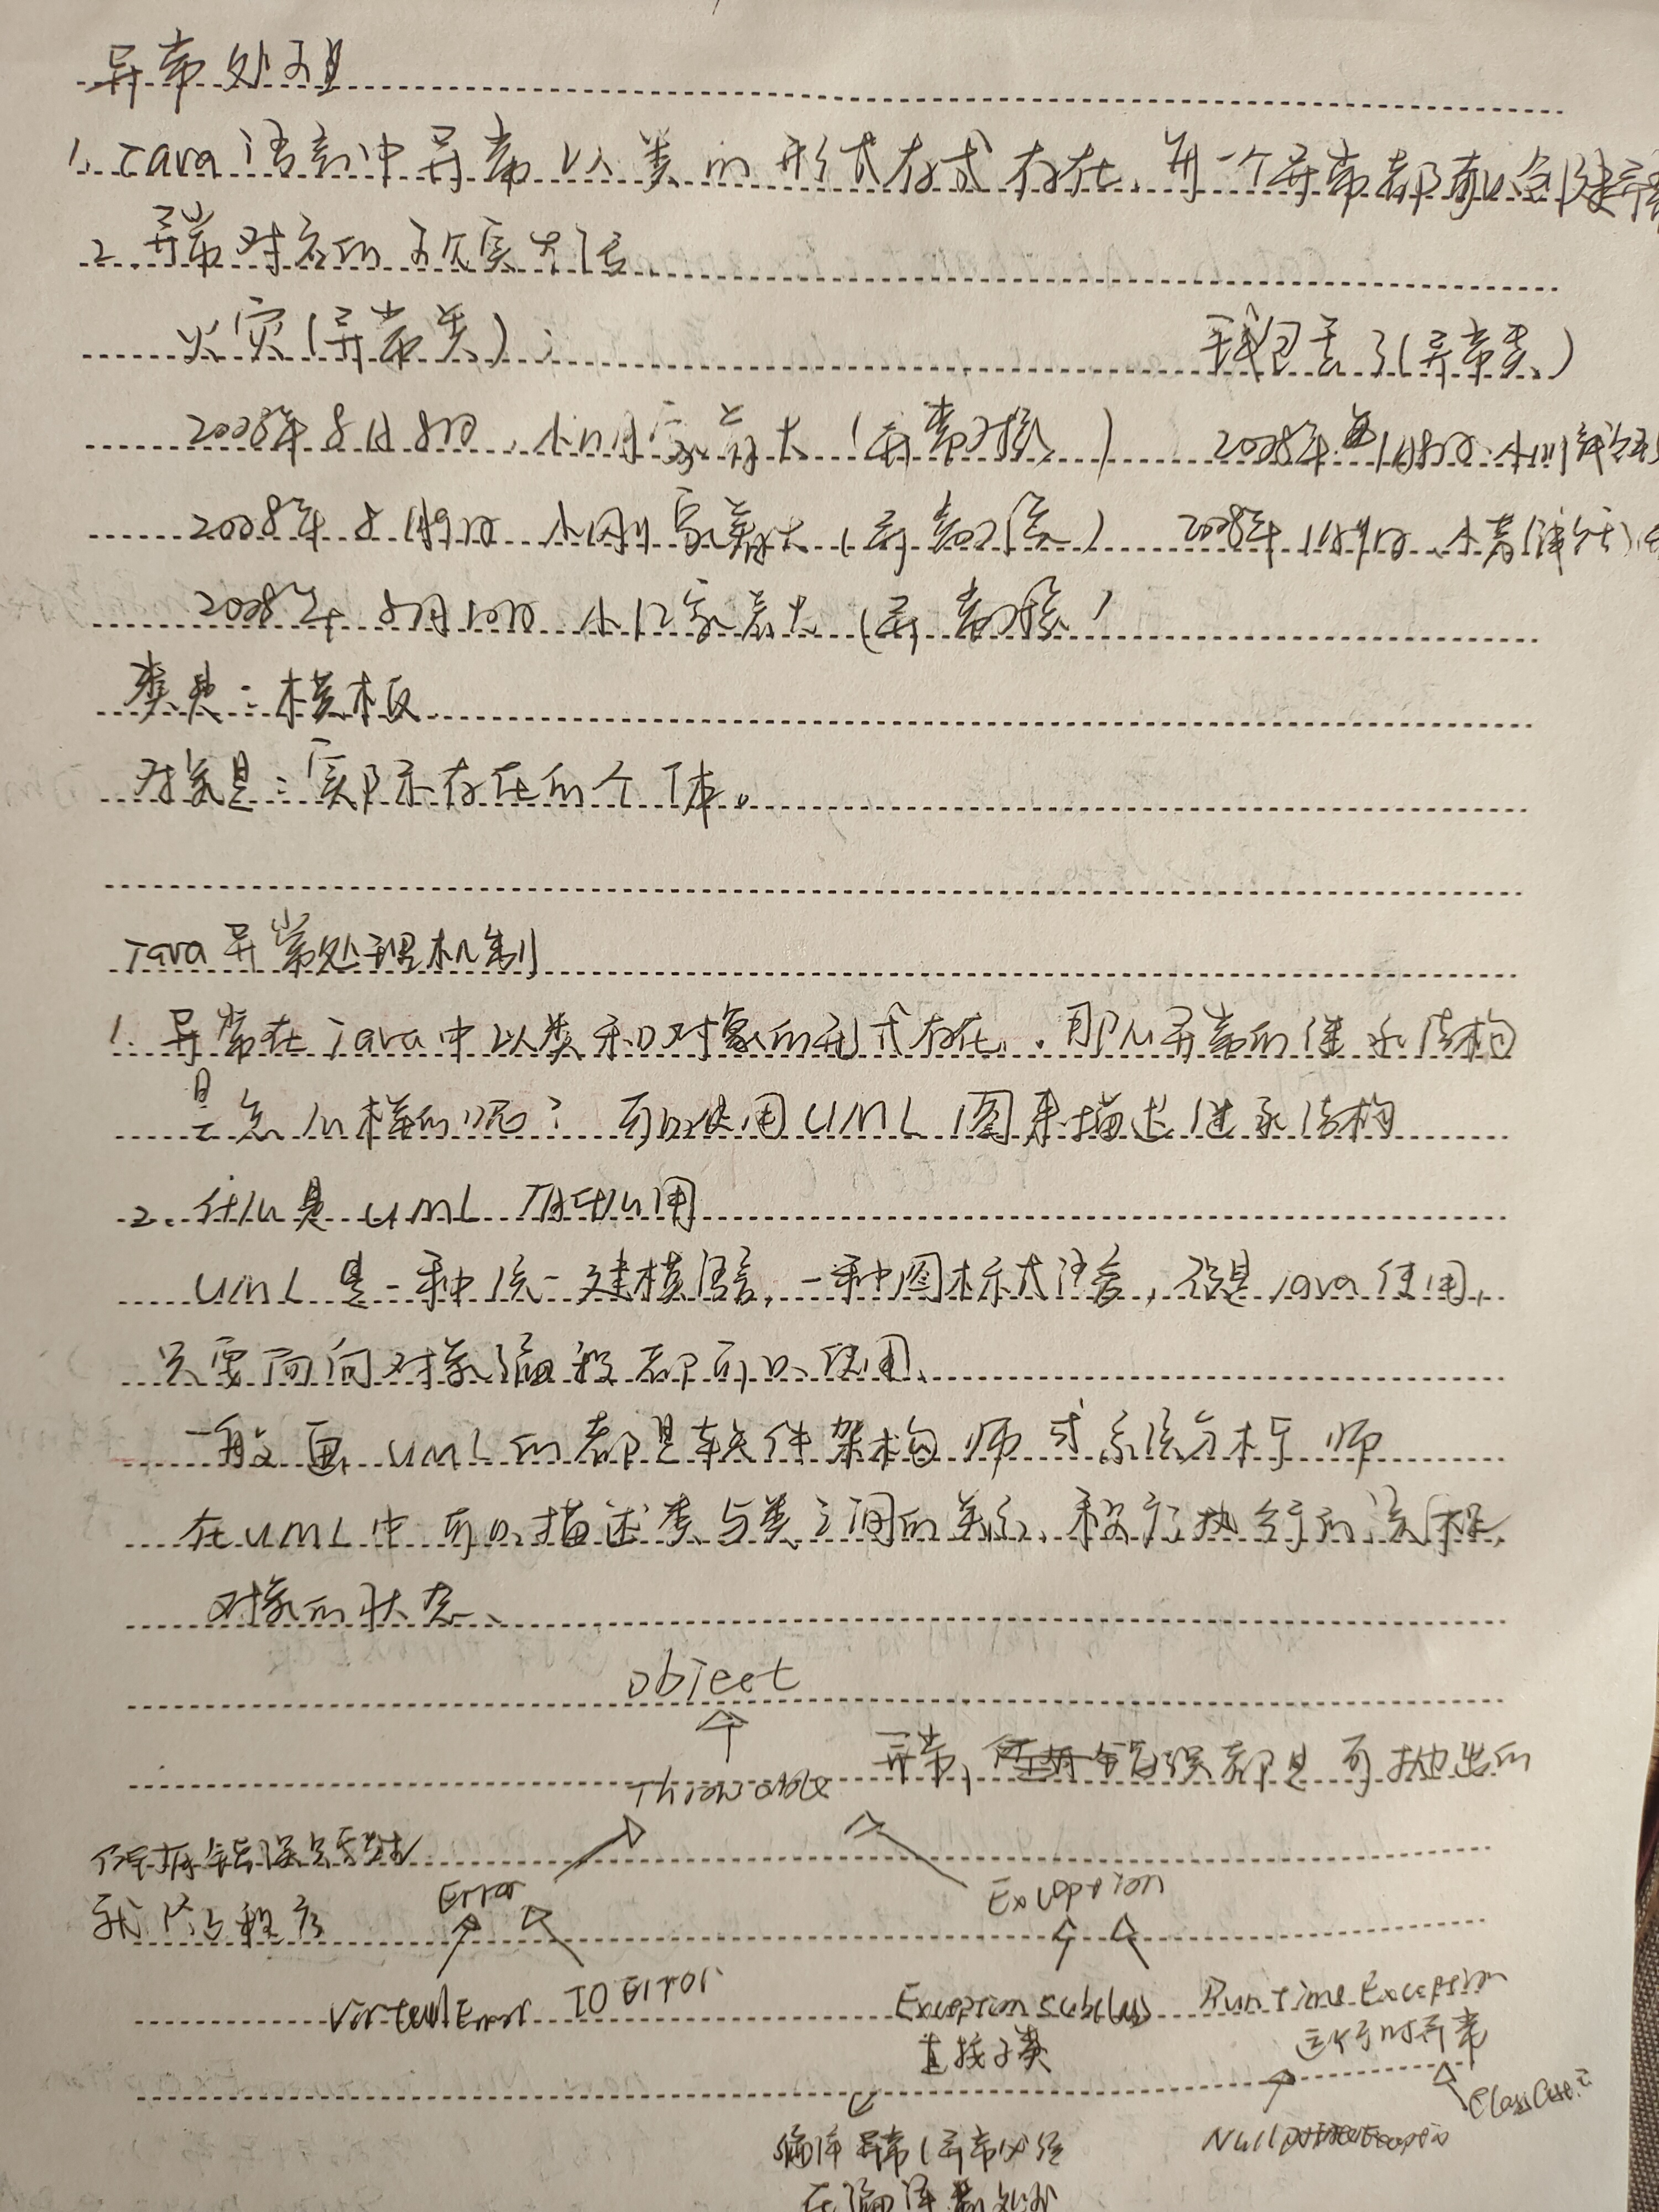 异常处理
1. Java语言中异常以类的形式存式存在,每一个异常都可以创建异
2. 异常对应的现实生活
火灾(异常类): 钱包丢了(异常类)
2008年8月8日,小明家着火(异常对象) 2008年1月8日,小川钱包丢
2008年8月9日 小刚家着火(异常对象) 2008年1月9日,小
2008年8月10日 小红家着火(异常对象)
类是:模板
对象是:实际存在的个体。
Java异常处理机制
1. 异常在Java中以类和对象的形式存在.那么异常的继承结构
是怎么样的呢?可以使用UML图来描述继承结构
2. 什么是UML 有什么用
UML是一种统一建模语言,一种图标式语言,不是Java使用,
只要面向对象编程都可以使用.
一般画UML的都是软件架构师或系统分析师
在UML中可以描述类与类之间的关系、程序执行的流程、
对象的状态、
Object
Throwable 异常,错误都是可抛出的
只要错误只导致
退出程序
Error Exception
VirtualError IO Error Exception subclass Runtime Exception
直接子类 运行时异常
编译异常(异常必须 NullpointerExceptio ClassCase
在编译